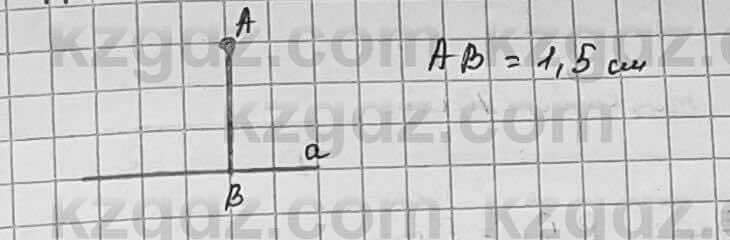 A
AB = 1,5 см
a
B
kzgdz.com kzgdz.com
kzgdz.com
kzgdz.com kzgdz.com